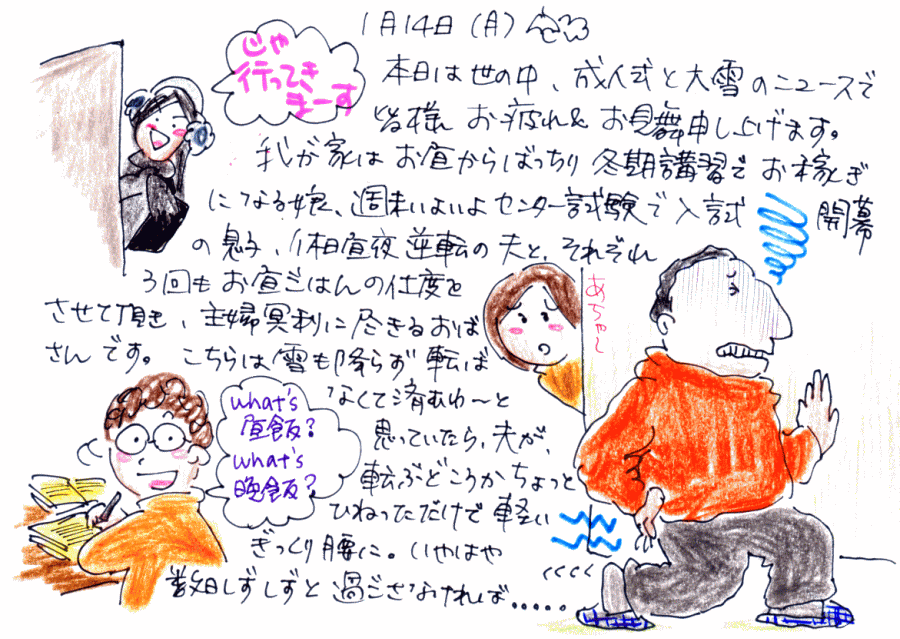 1月14日(月)
じゃ
行ってき
まーす
本日は世の中、成人式と大雪のニュースで
皆様 お疲れ& お見舞申し上げます。
我が家は お昼からばっちり 冬期講習で お稼ぎ
になる娘、週末いよいよ センター試験で 入試 開幕
の息子、相昼夜逆転の夫と、それぞれ
3回も お昼ごはんの仕度を
させて頂き、主婦冥利に 尽きるおば
さんです。 こちらは 雪も降らず 転ば
なくて済むわ〜と
思っていたら、夫が、
転ぶどころか ちょっと
ひねっただけで 軽い
ぎっくり腰に。いやはや
数日しずしずと 過ごさなければ.....
あちゃ〜
what's
昼飯?
what's
晩飯?